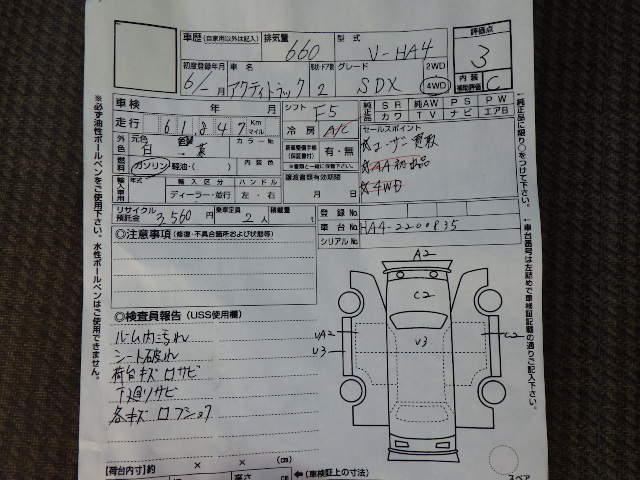 車歴 (自家用以外は記入) 排気量 660 型式 V-HA4 評価点 3
初度登録年月 6/- 月 車名 アクティトラック 形状・ドア数 2 グレード SDX 2WD 4WD 内装補助評価 C
車検 年 月 シフト F5 純正品 SR 純AW PS PW
カワ TV ナビ エアB
走行 61,847 Km マイル 冷房 A/C セールスポイント
外色 元色 白 → 茶 カラー No 有・無 ☆ユーザー買取
燃料 ガソリン 軽油・( ) 内装色 ☆AA初出品
輸入車用 年式 輸入区分 ディーラー・並行 ハンドル 左・右 譲渡書類有効期間 月 日 ☆4WD
リサイクル預託金 3,560 円 乗車定員 2 人 積載量 t 登録No
車台No HA4-2200835
シリアルNo
◎注意事項 (修復・不具合箇所および状態等)
A2
C2
◎検査員報告 (USS使用欄)
ルーム内汚れ UA2 V3 C2
シート破れ V3
荷台キズ ロサビ
下廻りサビ
各キズ ロ
【荷台内寸】約 × × (cm) ←(車検証上の寸法)
高さ スペア
※必ず油性ボールペンをご使用下さい。水性ボールペンはご使用できません。
↑純正品に限り○をつけて下さい。
↑車台番号は左詰めで車検証記載の通りご記入下さい。